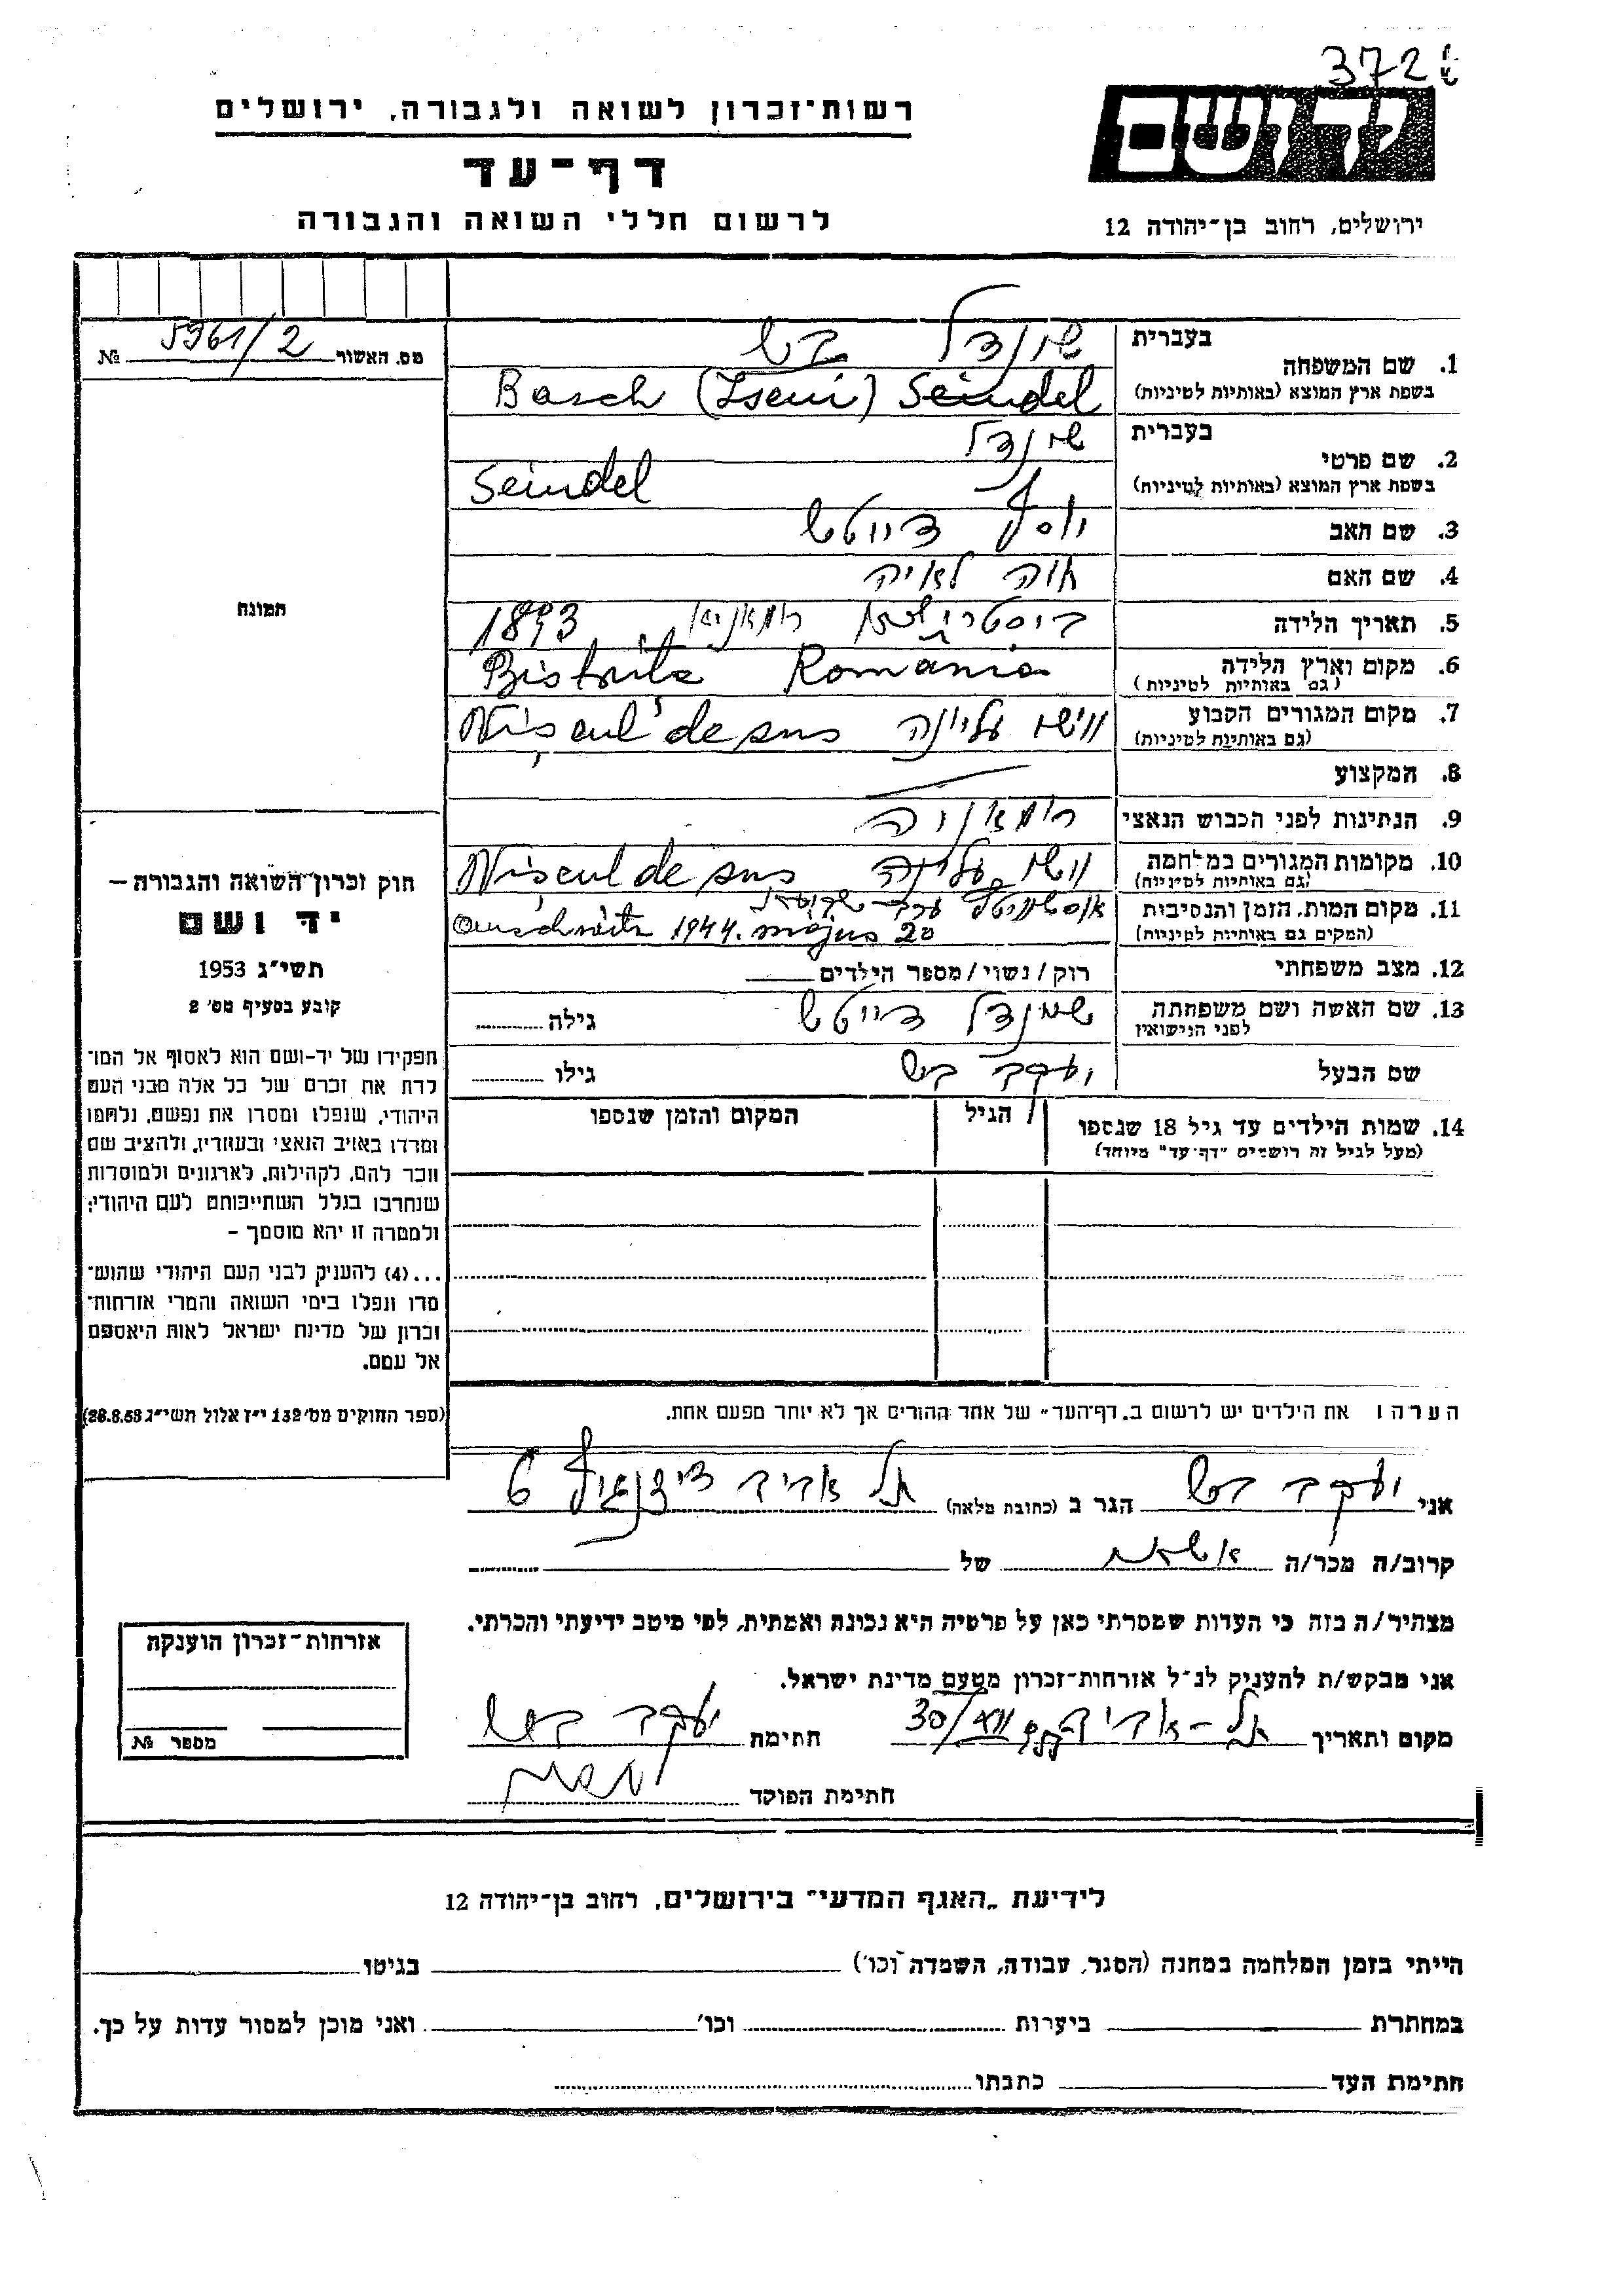 372
רשות־זכרון לשואה ולגבורה, ירושלים
דף־עד
לרשום חללי השואה והגבורה
יד ושם
ירושלים, רחוב בן־יהודה 12
מס. האשור 5961/2 №
בעברית שינדל בש
1. שם המשפחה
בשפת ארץ המוצא (באותיות לטיניות) Basch (Iseni) Seindel
בעברית שינדל
2. שם פרטי
בשפת ארץ המוצא (באותיות לטיניות) Seindel
3. שם האב יוסף דייטש
4. שם האם חוה לאיה
5. תאריך הלידה 1893 רומאניא
6. מקום וארץ הלידה Bistrita Romania
(גם באותיות לטיניות)
7. מקום המגורים הקבוע ווישו עליונה Vişeul de sus
(גם באותיות לטיניות)
8. המקצוע
9. הנתינות לפני הכבוש הנאצי רומאניה
10. מקומות המגורים במלחמה ווישו עליונה Vişeul de sus
(גם באותיות לטיניות)
11. מקום המות, הזמן והנסיבות ערב שבועות
(המקים גם באותיות לטיניות) Auschwitz 1944. majus 20
12. מצב משפחתי רוק/נשוי/מספר הילדים
13. שם האשה ושם משפחתה שינדל דייטש גילה
לפני הנישואין
שם הבעל יעקב בש גילו
14. שמות הילדים עד גיל 18 שנספו הגיל המקום והזמן שנספו
(מעל לגיל זה רושמים "דף־עד" מיוחד)
הערה ו את הילדים יש לרשום ב„דף־העד" של אחד ההורים אך לא יותר מפעם אחת.
התמונה
חוק זכרון־השואה והגבורה –
יד ושם
תשי״ג 1953
קובע בסעיף מס׳ 2
תפקידו של יד-ושם הוא לאסוף אל המו־
לדת את זכרם של כל אלה מבני העם
היהודי, שנפלו ומסרו את נפשם, נלחמו
ומרדו באויב הנאצי ובעוזריו, ולהציב שם
וזכר להם, לקהילות, לארגונים ולמוסדות
שנחרבו בגלל השתייכותם לעם היהודי;
ולמטרה זו יהא מוסמך –
...(4) להעניק לבני העם היהודי שהוש־
מדו ונפלו בימי השואה והמרי אזרחות־
זכרון של מדינת ישראל לאות היאספם
אל עמם.
(ספר החוקים מס׳ 132 י״ז אלול תשי״ג 28.8.53)
אני יעקב בש הגר ב (כתובת מלאה) תל אביב דיזנגוף 6
קרוב/ה מכר/ה של
מצהיר/ה בזה כי העדות שמסרתי כאן על פרטיה היא נכונה ואמתית, לפי מיטב ידיעתי והכרתי.
אני מבקש/ת להעניק לנ״ל אזרחות־זכרון מטעם מדינת ישראל.
מקום ותאריך תל-אביב 30/VII חתימת יעקב בש
חתימת הפוקד
אזרחות־זכרון הוענקה
מספר №
לידיעת „האגף המדעי" בירושלים, רחוב בן־יהודה 12
הייתי בזמן המלחמה במחנה (הסגר, עבודה, השמדה וכו׳) בגיטו
במחתרת ביערות וכו׳ ואני מוכן למסור עדות על כך.
חתימת העד כתבתו